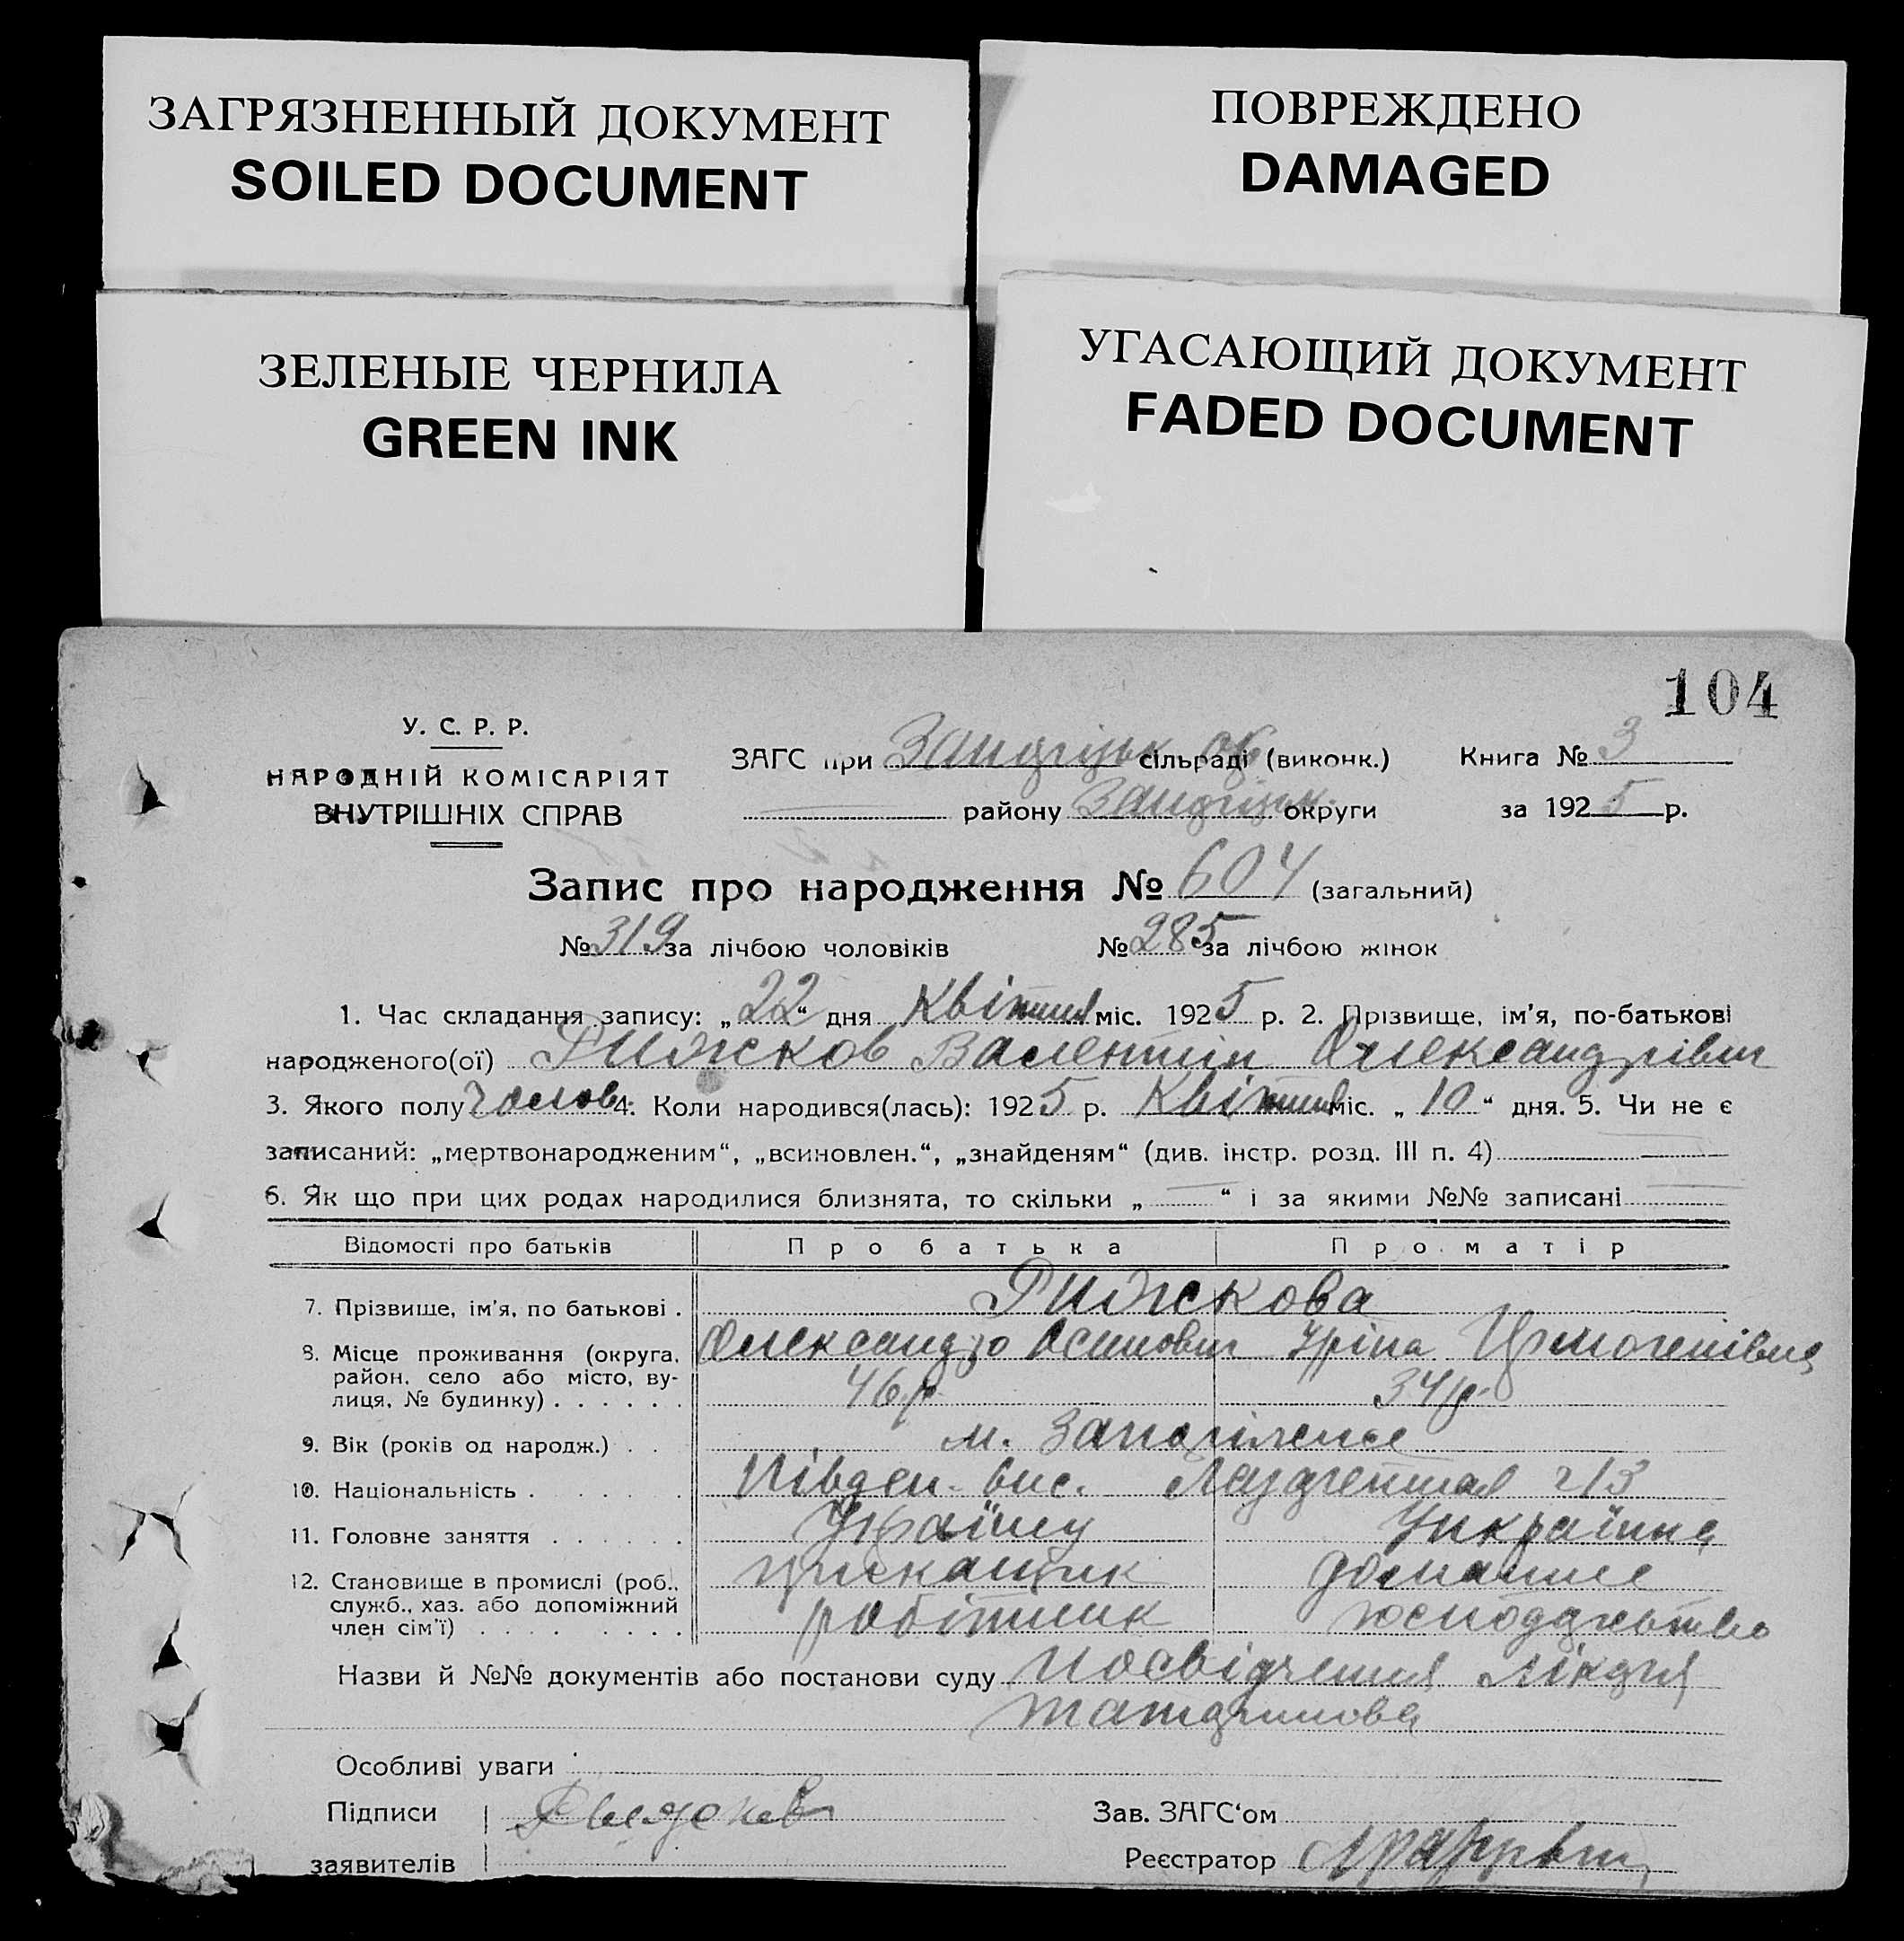 ЗАГРЯЗНЕННЫЙ ДОКУМЕНТ
SOILED DOCUMENT
ПОВРЕЖДЕНО
DAMAGED
ЗЕЛЕНЫЕ ЧЕРНИЛА
GREEN INK
УГАСАЮЩИЙ ДОКУМЕНТ
FADED DOCUMENT
104
У. С. Р. Р.
НАРОДНІЙ КОМІСАРІЯТ
ВНУТРІШНІХ СПРАВ
ЗАГС при сільраді (виконк.) Книга № 3
району округи за 1925 р.
Запис про народження № 604 (загальний)
№ 319 за лічбою чоловіків № 285 за лічбою жінок
1. Час складання запису: „22“ дня Квітня міс. 1925 р. 2. Прізвище, ім'я, по-батькові
народженого(ої) Рижков Валентін Олександрівич
3. Якого полу чолов. 4. Коли народився(лась): 1925 р. Квітня міс. „10“ дня. 5. Чи не є
записаний: „мертвонародженим“, „всиновлен.“, „знайденям“ (див. інстр. розд. III п. 4)
6. Як що при цих родах народилися близнята, то скільки „ “ і за якими №№ записані
Відомості про батьків Про батька Про матір
7. Прізвище, ім'я, по батькові . Рижкова
8. Місце проживання (округа, Олександр Осипович Іріна
район, село або місто, ву-
лиця, № будинку) . . . . . . 46 р. 34 р.
9. Вік (років од народж.) . . м. Запоріжжє
10. Національність . . . . . Південн. вис. 213
11. Головне заняття . . . . . . Українец Українка
12. Становище в промислі (роб., прикащик домашнє
служб., хаз. або допоміжний
член сім'ї) . . . . . . . . . робітник господарство
Назви й №№ документів або постанови суду посвідчення лікаря
Особливі уваги
Підписи Зав. ЗАГС'ом
заявителів Реєстратор